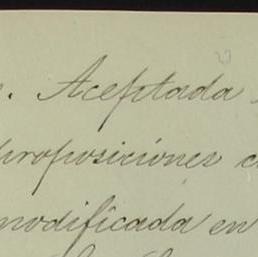 . Aceptada
proposiciónes
modificada en